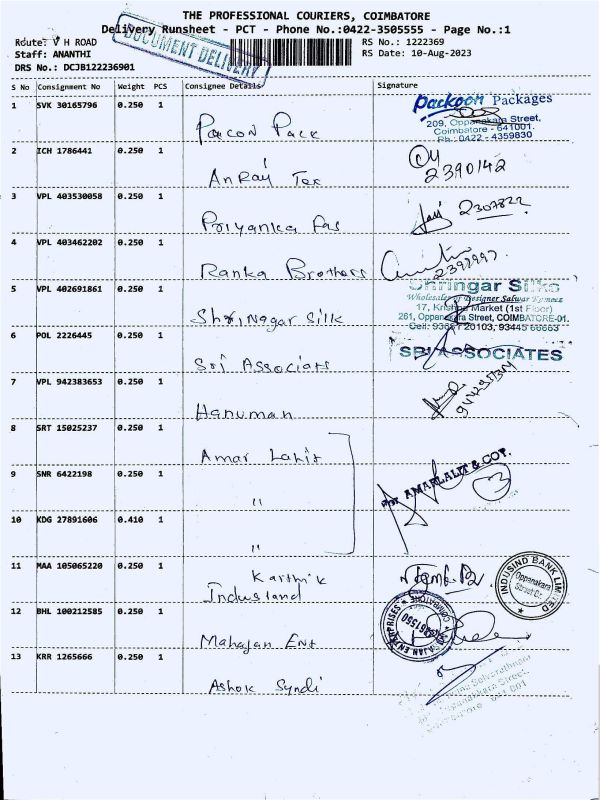 THE PROFESSIONAL COURIERS, COIMBATORE
Delivery Runsheet - PCT - Phone No.:0422-3505555 - Page No.:1
Route: V H ROAD
RS No.: 1222369
Staff: ANANTHI
RS Date: 10-Aug-2023
DRS No.: DCJB122236901
DOCUMENT DELIVERY
S No Consignment No Weight PCS Consignee Details Signature
1 SVK 30165796 0.250 1 Pacon Pack
Packoon Packages
209, Oppanakara Street,
Coimbatore - 641001.
Ph: 0422 - 4359830
2 ICH 1786441 0.250 1 AnRaj Tex
2390142
3 VPL 403530058 0.250 1 Priyanka Fas
2307822
4 VPL 403462202 0.250 1 Ranka Brothers
5 VPL 402691861 0.250 1 Shrinagar Silk
Shringar Silks
Wholesaler of Designer Salwar Kameez
17, Krishna Market (1st Floor)
261, Oppanakara Street, COIMBATORE-01.
Cell: 20103, 93445 66663
6 POL 2226445 0.250 1 Sri Associats
SRI ASSOCIATES
7 VPL 942383653 0.250 1 Hanuman
8 SRT 15025237 0.250 1 Amar Lalit
9 SNR 6422198 0.250 1 "
For AMARLALIT & COY.
3
10 KDG 27891606 0.410 1 "
11 MAA 105065220 0.250 1 Karthik
Indusland
INDUSIND BANK LIMITED
Oppanakara
Street Cr.
12 BHL 100212585 0.250 1 Mahajan Ent
MAHAJAN ENTERPRISES
COIMBATORE
13 KRR 1265666 0.250 1 Ashok Syndi